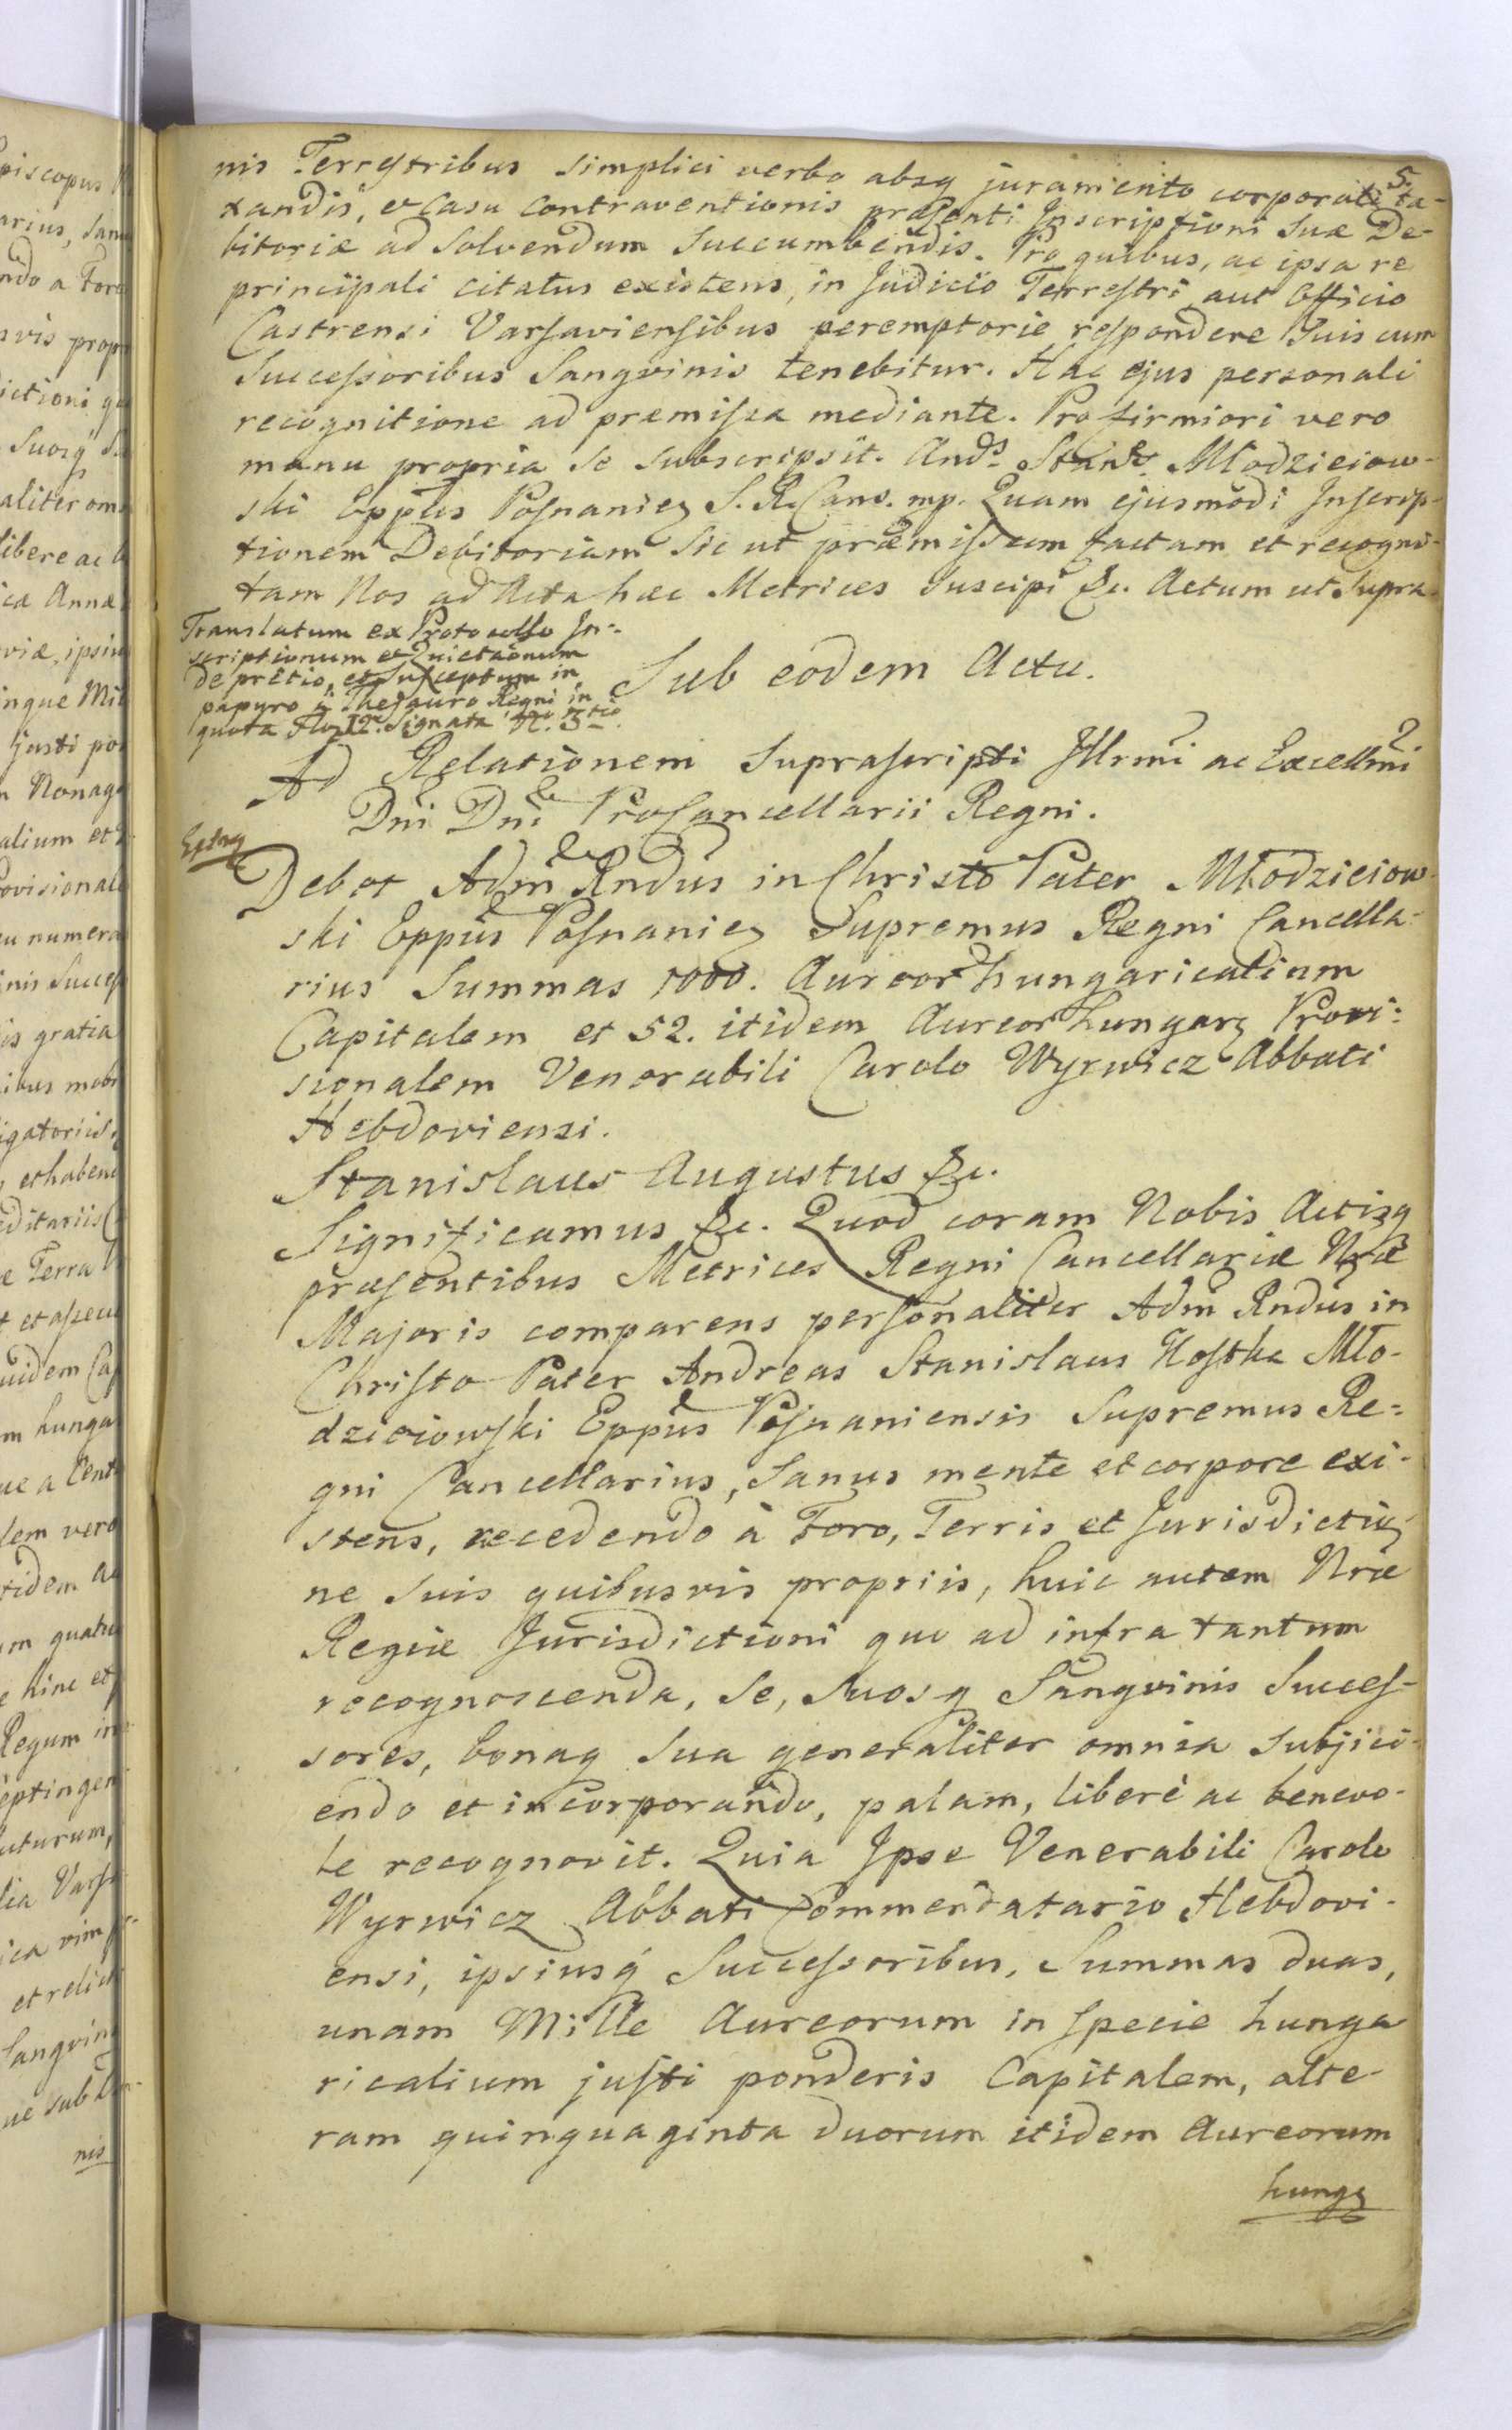 5.
nis Terrestribus simplici verbo absq juramento corporali ta-
xandis, et casu contraventionis præsenti Inscriptioni suæ De-
bitoriæ ad solvendum succumbendis. Pro quibus, ac ipsa re
principali citatus existens, in Judicio Terrestri aut Officio
Castrensi Varsaviensibus peremptorie respondere suis cum
Successoribus Sangvinis tenebitur. Hac ejus personali
recognitione ad præmissa mediante. Pro firmiori vero
manu propria se subscripsit. Młodzieiow-
ski Posnanien S. R. Canc. mp. Quam ejusmodi Inscrip-
tionem Debitoriam sic ut præmissum factam et recogni-
tam Nos ad Acta hæc Metrices suscipi &c. Actum ut supra.
Translatum ex Protocollo In-
scriptionum et Quietaonum
de pretio, et susceptum in
papyro à Thesauro Regni in
quota signata N. 3tio
Sub eodem Actu.
Ad Relationem suprascripti Illrmi ac Excellmi
Dni Dni ProCancellarii Regni.
Debet Adm Rndus in Christo Pater Młodzieiow-
ski Eppus Posnanien Supremus Regni Cancella-
rius Summas 1000. Aureor hungaricalium
Capitalem et 52. itidem Aureor hungar Provi-
sionalem Venerabili Carolo Wyrwicz Abbati
Hebdoviensi.
Stanislaus Augustus &c.
Significamus &c. Quod coram Nobis Actisq
præsentibus Metrices Regni Cancellariæ Nræ
Majoris comparens personaliter Adm Rndus in
Christo Pater Andreas Stanislaus Kostka Mło-
dzieiowski Eppus Posnaniensis Supremus Re-
gni Cancellarius, sanus mente et corpore exi-
stens, recedendo à Foro, Terris et Jurisdictio-
ne suis quibusvis propriis, huic autem Nræ
Regiæ Jurisdictioni quo ad infra tantum
recognoscenda, se, suosq Sangvinis Succes-
sores, bonaq sua generaliter omnia subjici-
endo et incorporando, palam, liberè ac benevo-
le recognovit. Quia Ipse Venerabili Carolo
Wyrwicz Abbati Commendatario Hebdovi-
ensi, ipsiusq Successoribus, Summas duas,
unam Mille Aureorum in specie hunga
ricalium justi ponderis Capitalem, alte-
ram quinquaginta duorum itidem Aureorum
hung